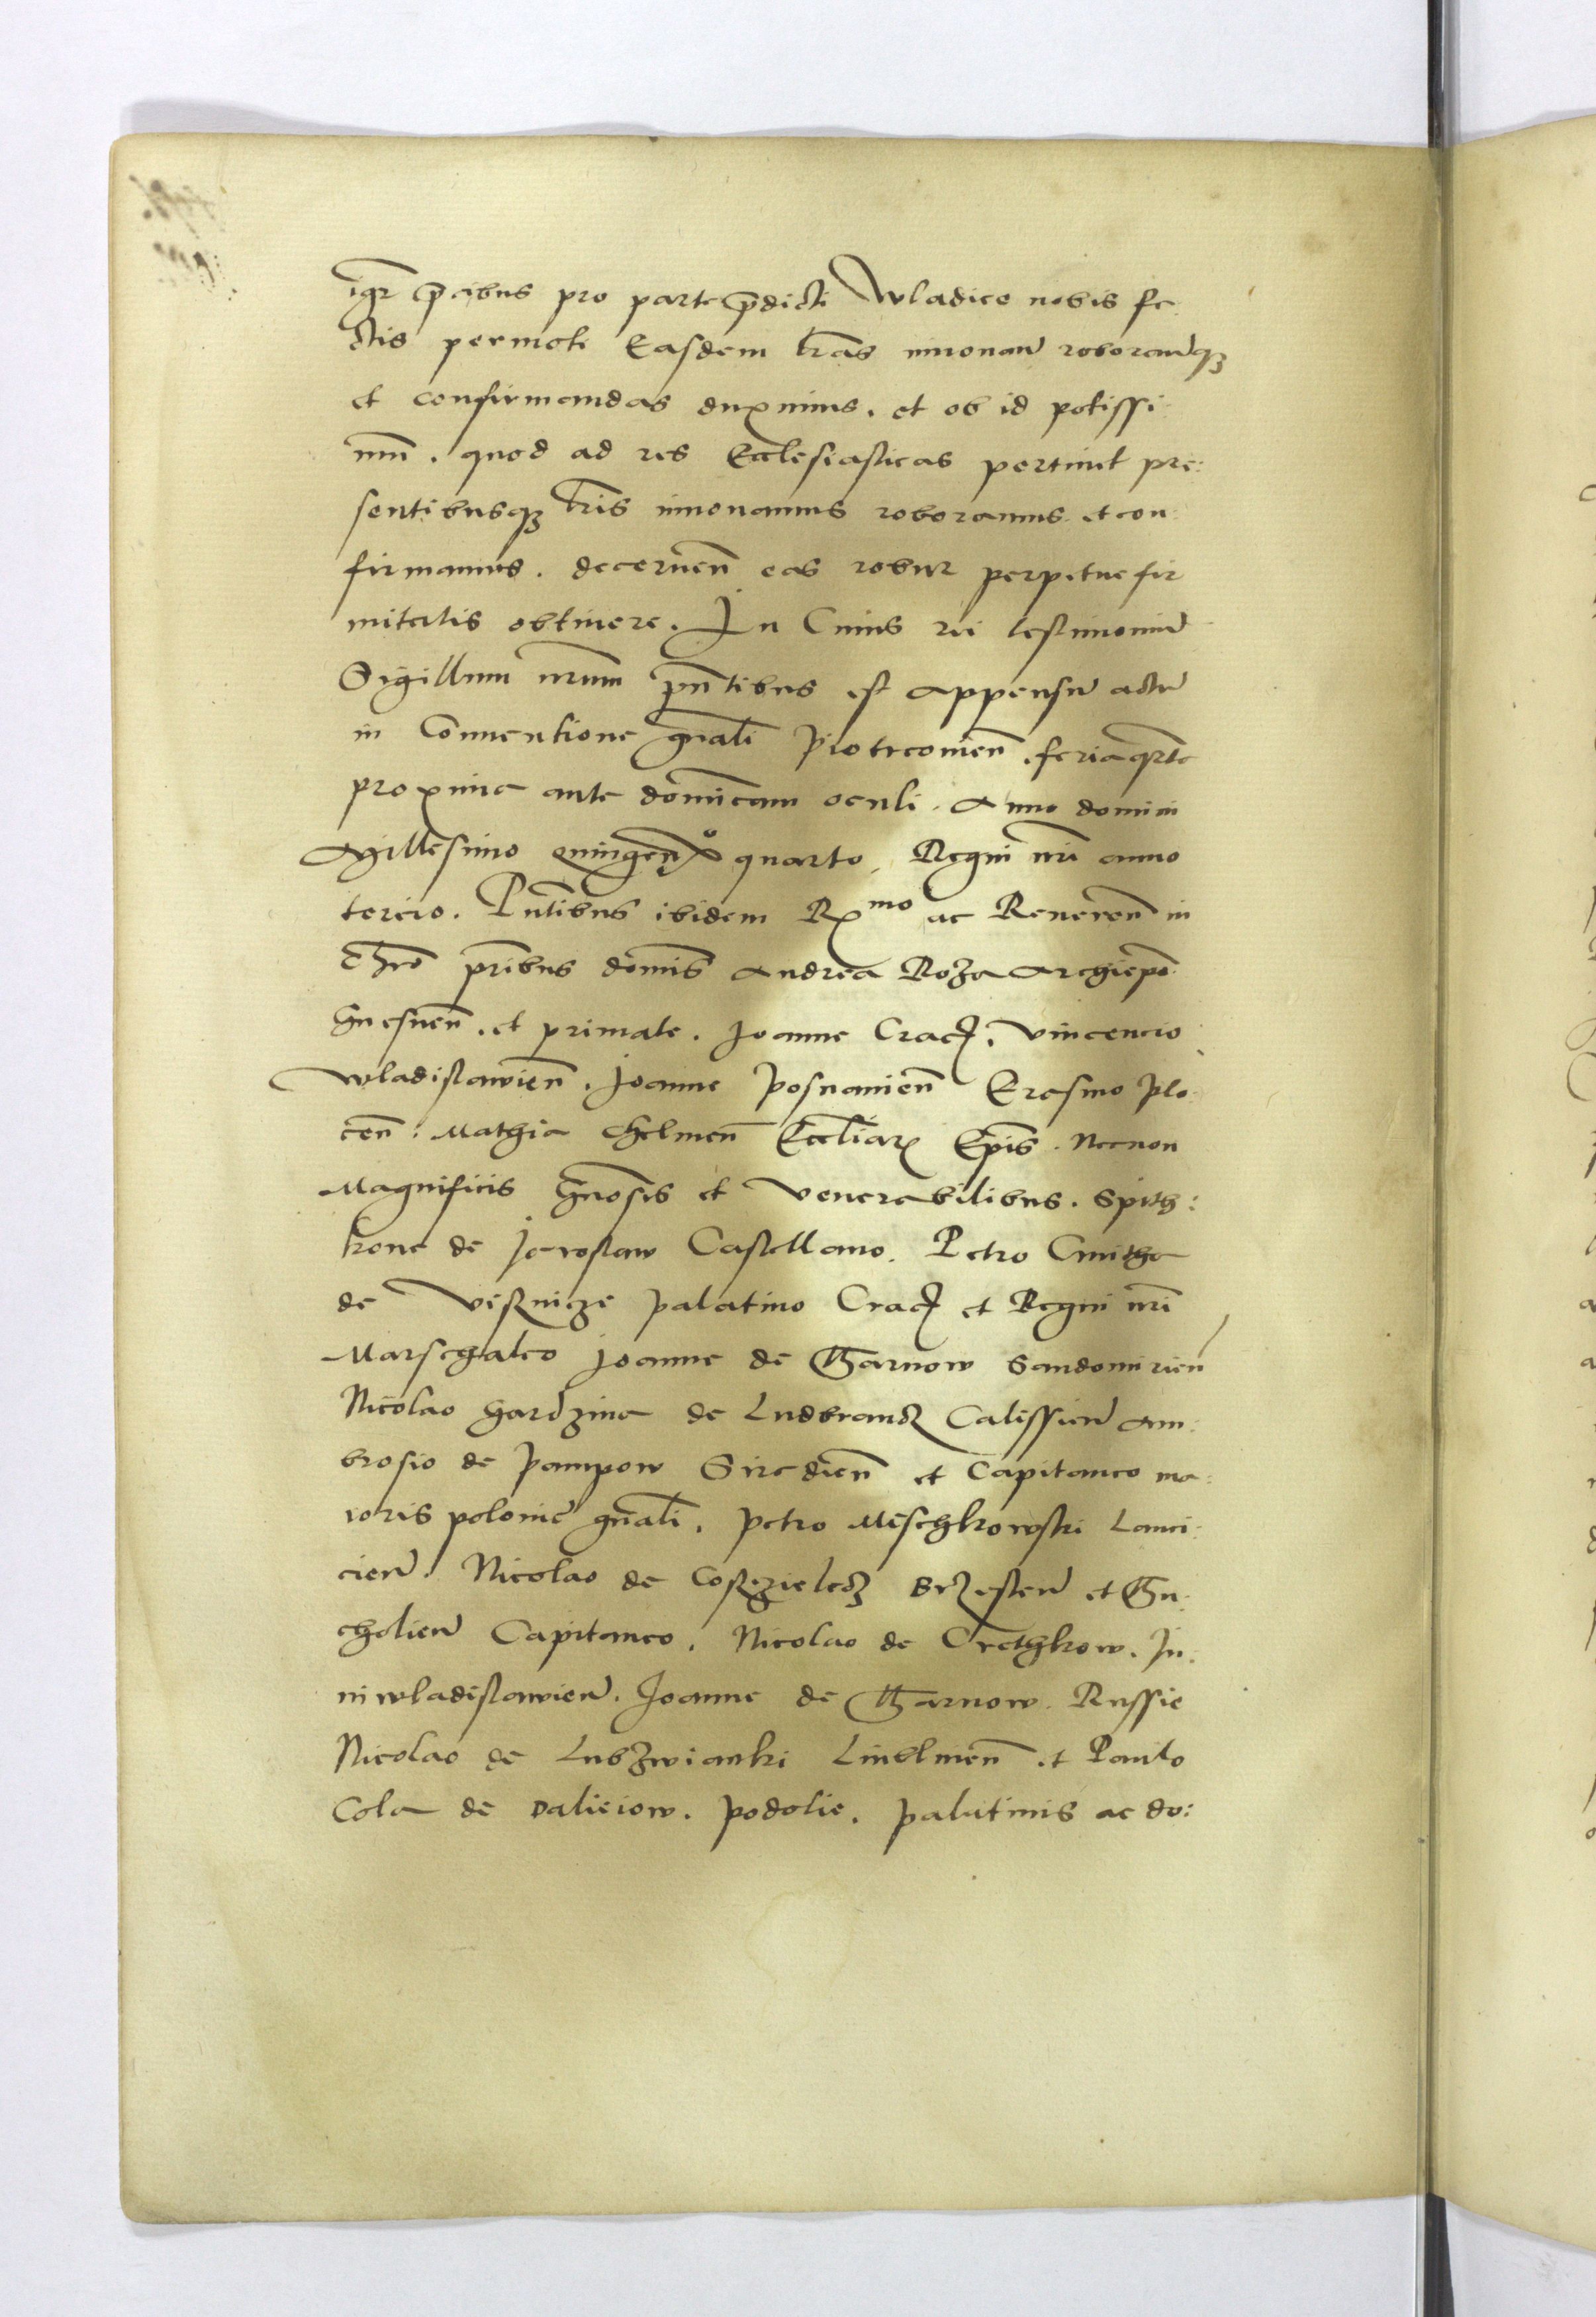 igr̃ p̃cibus pro parte p̃dicti Wladice nobis fa
ctis permoti Easdem lr̃as innouan̄ roboranq̃ꝫ
et confirmandas duximus. et ob id potissi
mũ. quod ad res Ecclesiasticas pertinet pre:
sentibusqꝫ lr̃is innouamus roboramus et con:
firmamus. decernen̄ eas robur perpetue fir
mitatis obtinere. In Cuius rei testimoniũ
Sigillum nr̃um pn̄tibus est appensũ actũ
in Conuentione gn̄ali piotrcouien̄. feria qrta
proxima ante dominicam oculi. Anno domini
Millesimo quingen̄o quarto. Regni nr̃i anno
tercio. Pn̄tibus ibidem Rx^mo ac Reueren̄ in
Chro pr̃ibus dominis Andrea Roza Archiepõ
Gnesnen̄. et primate. Joanne Crac̄. Vincencio
Wladislawien̄. Joanne Posnanien̄ Erasmo plo:
cen̄. Mathia Chelmen̄ Eccl̄iarꝝ Ep̄is. Necnon
Magnificis Gn̄osis et venerabilibus. Spith:
kone de Jaroslaw Castellano. Petro Cmitha
de visznicze palatino Crac̄ et Regni nr̃i
Marschalco Joanne de Tharnow Sandomirien̄
Nicolao Gardzina de Ludbrancz Calissien̄ Am:
brosio de pampow Siradien̄ et Capitaneo ma:
ioris polonie gn̄ali. petro Mischkowski Lanci:
cien̄. Nicolao de Coszczielecz Brzesten̄ et Thu:
cholien̄ Capitaneo. Nicolao de Crethkow. Ju:
niwladislawien̄. Joanne de Tharnow. Russie
Nicolao de Lubzwianki Lublinen̄ et Paulo
Cola de Dalieiow. podolie. palatinis ac do: